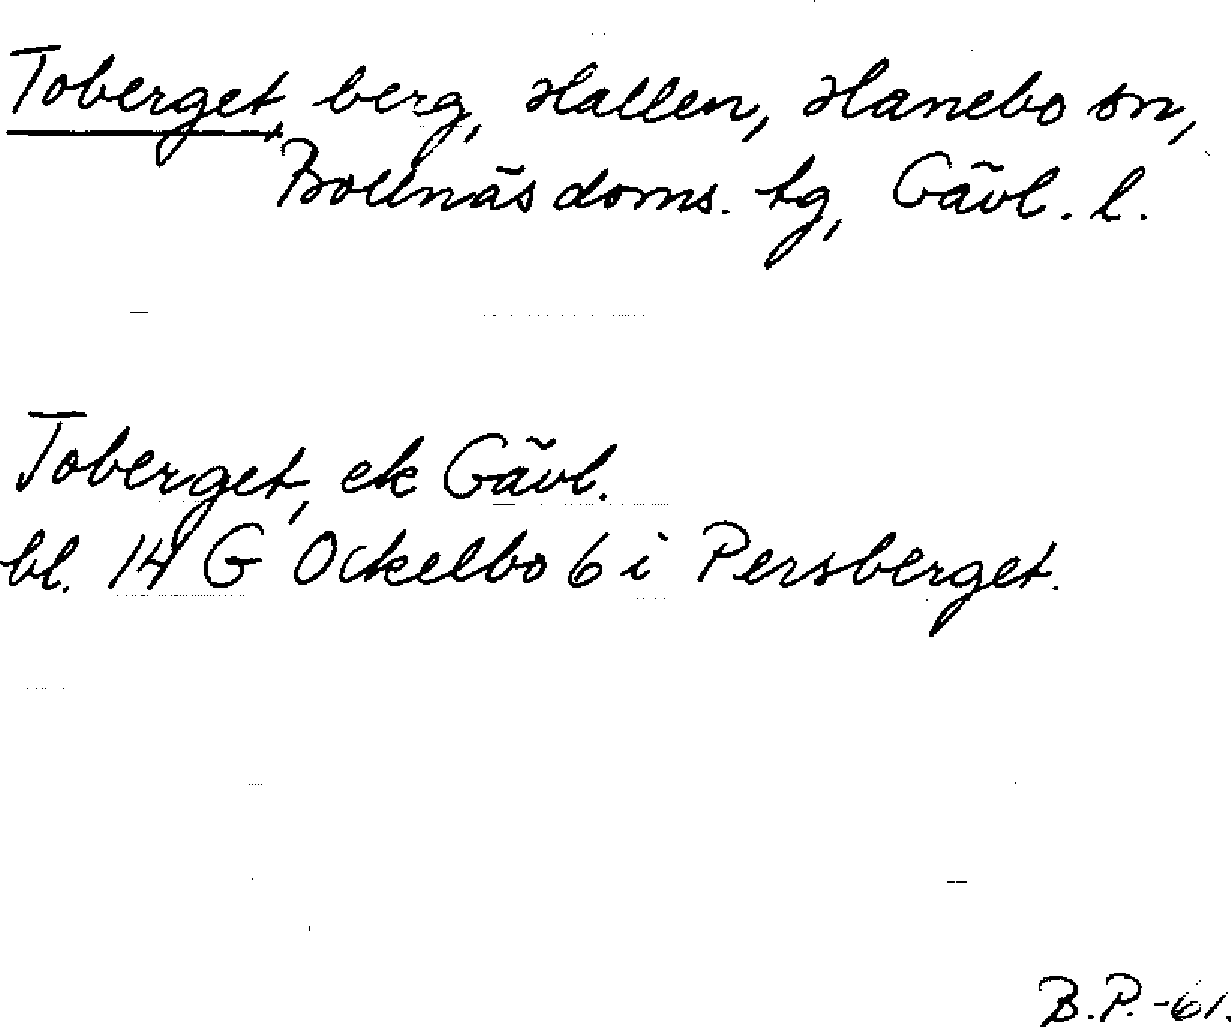 Toberget, berg, Hallen, Hanebo sn,
Bollnäs doms. tg, Gävl. l.
Toberget, ek Gävl.
bl. 14 G Ockelbo 6 i Persberget.
B.P.-61.